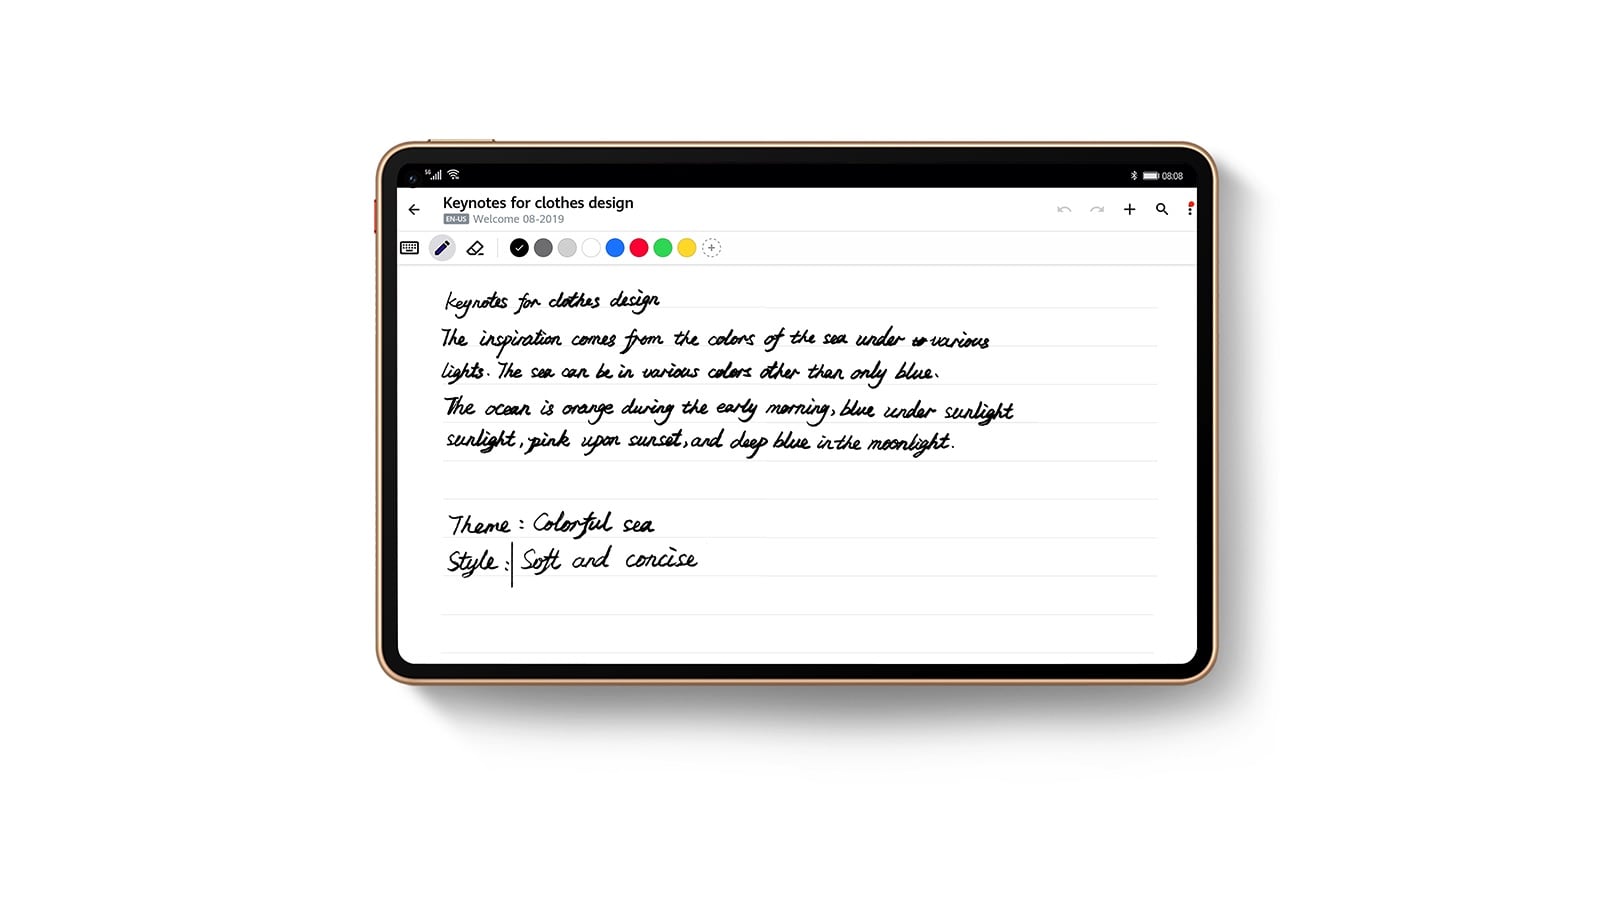 5G
08:08
Keynotes for clothes design
EN-US Welcome 08-2019
Keynotes for clothes design
The inspiration comes from the colors of the sea under various
lights. The sea can be in various colors other than only blue.
The ocean is orange during the early morning, blue under sunlight
sunlight, pink upon sunset, and deep blue in the moonlight.
Theme: Colorful sea
Style: Soft and concise